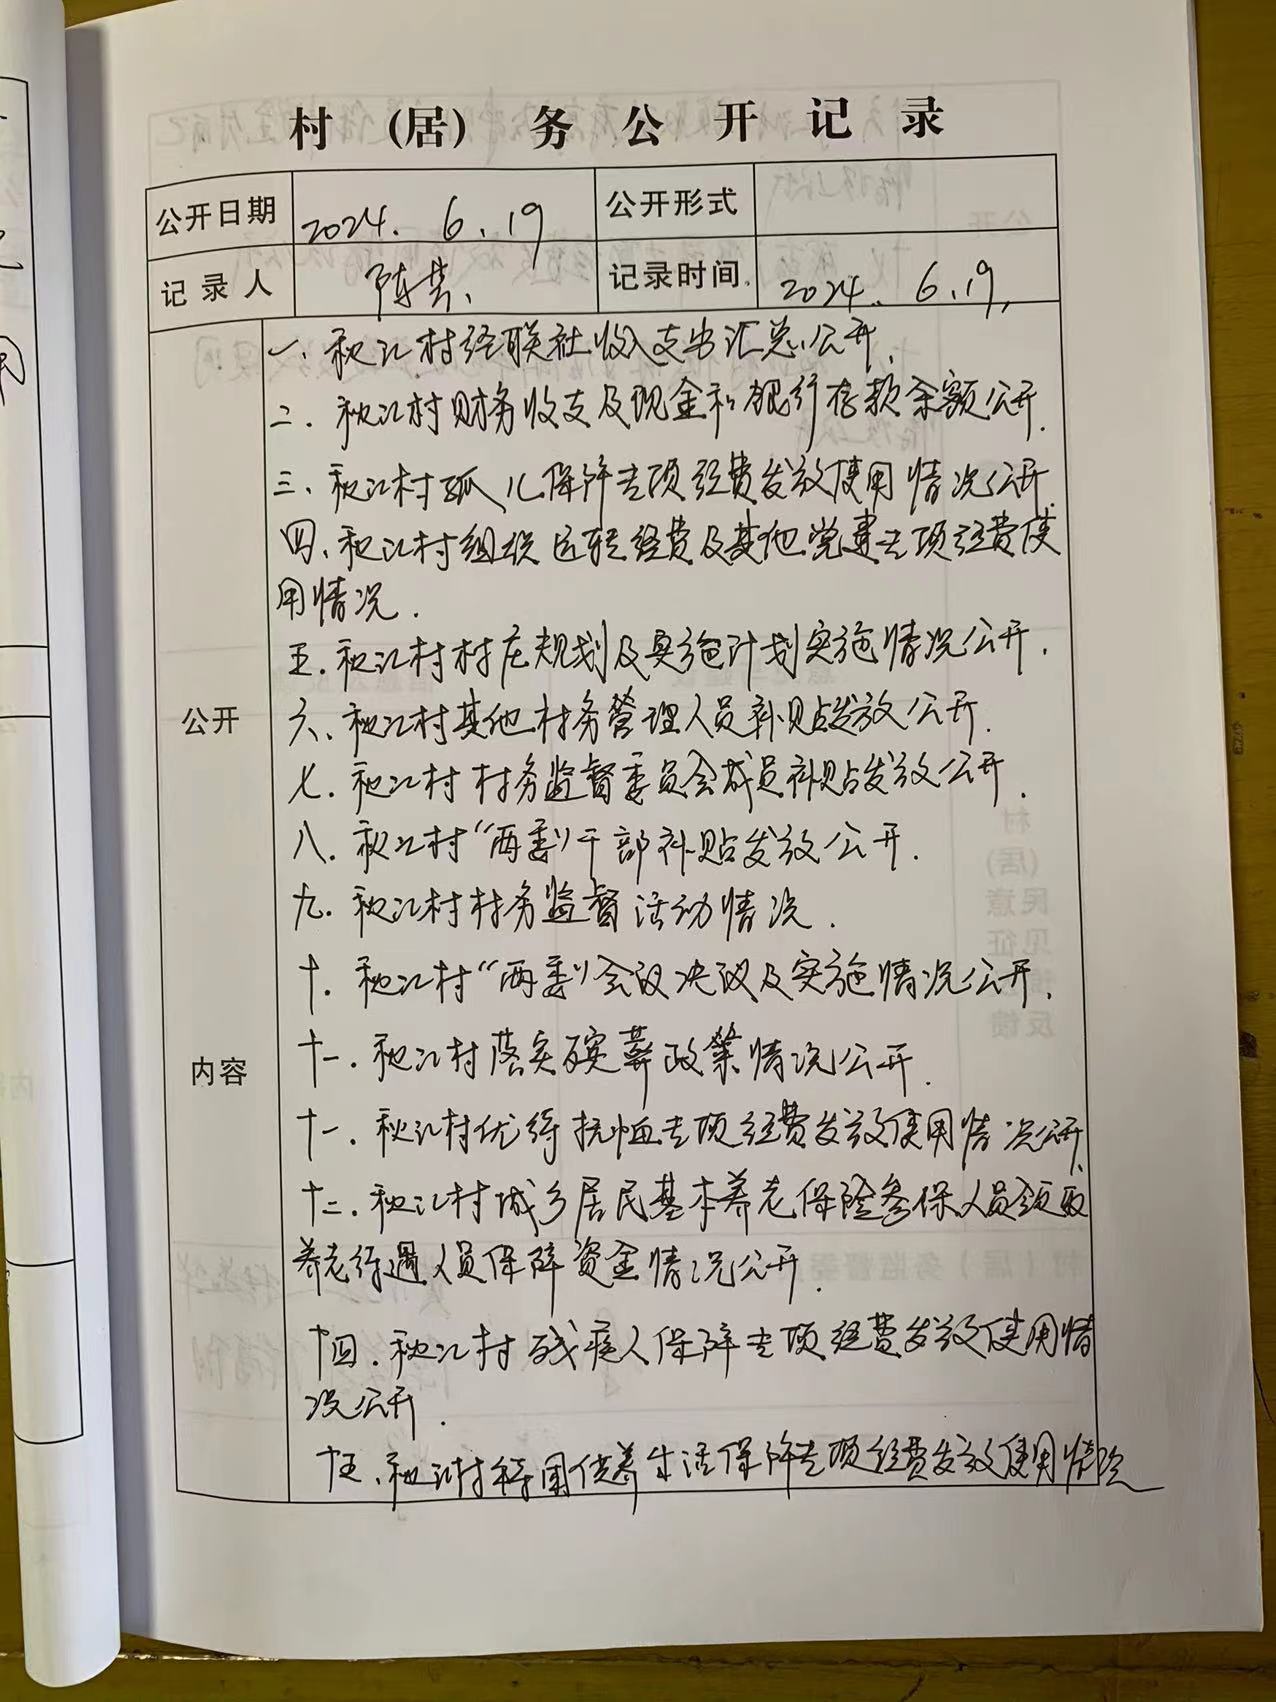 村（居）务公开记录
公开日期 2024. 6.19 公开形式
记录人 陈芸、 记录时间 2024. 6.19.
一、秋江村经联社收入支出汇总公开.
二、秋江村财务收支及现金和银行存款余额公开.
三、秋江村孤儿保障专项经费发放使用情况公开.
四、秋江村组织运转经费及其他党建专项经费使
用情况.
五.秋江村村庄规划及实施计划实施情况公开.
六、秋江村其他村务管理人员补贴发放公开.
七.秋江村村务监督委员会成员补贴发放公开.
公开
八.秋江村“两委”干部补贴发放公开.
九.秋江村村务监督活动情况.
十.秋江村“两委”会议决议及实施情况公开.
十一.秋江村落实殡葬政策情况公开.
内容
十一.秋江村优待抚恤专项经费发放使用情况公开.
十二.秋江村城乡居民基本养老保险参保人员领取
养老待遇人员保障资金情况公开.
十四.秋江村残疾人保障专项经费发放使用情
况公开.
十五.秋江村特困供养生活保障专项经费发放使用情况